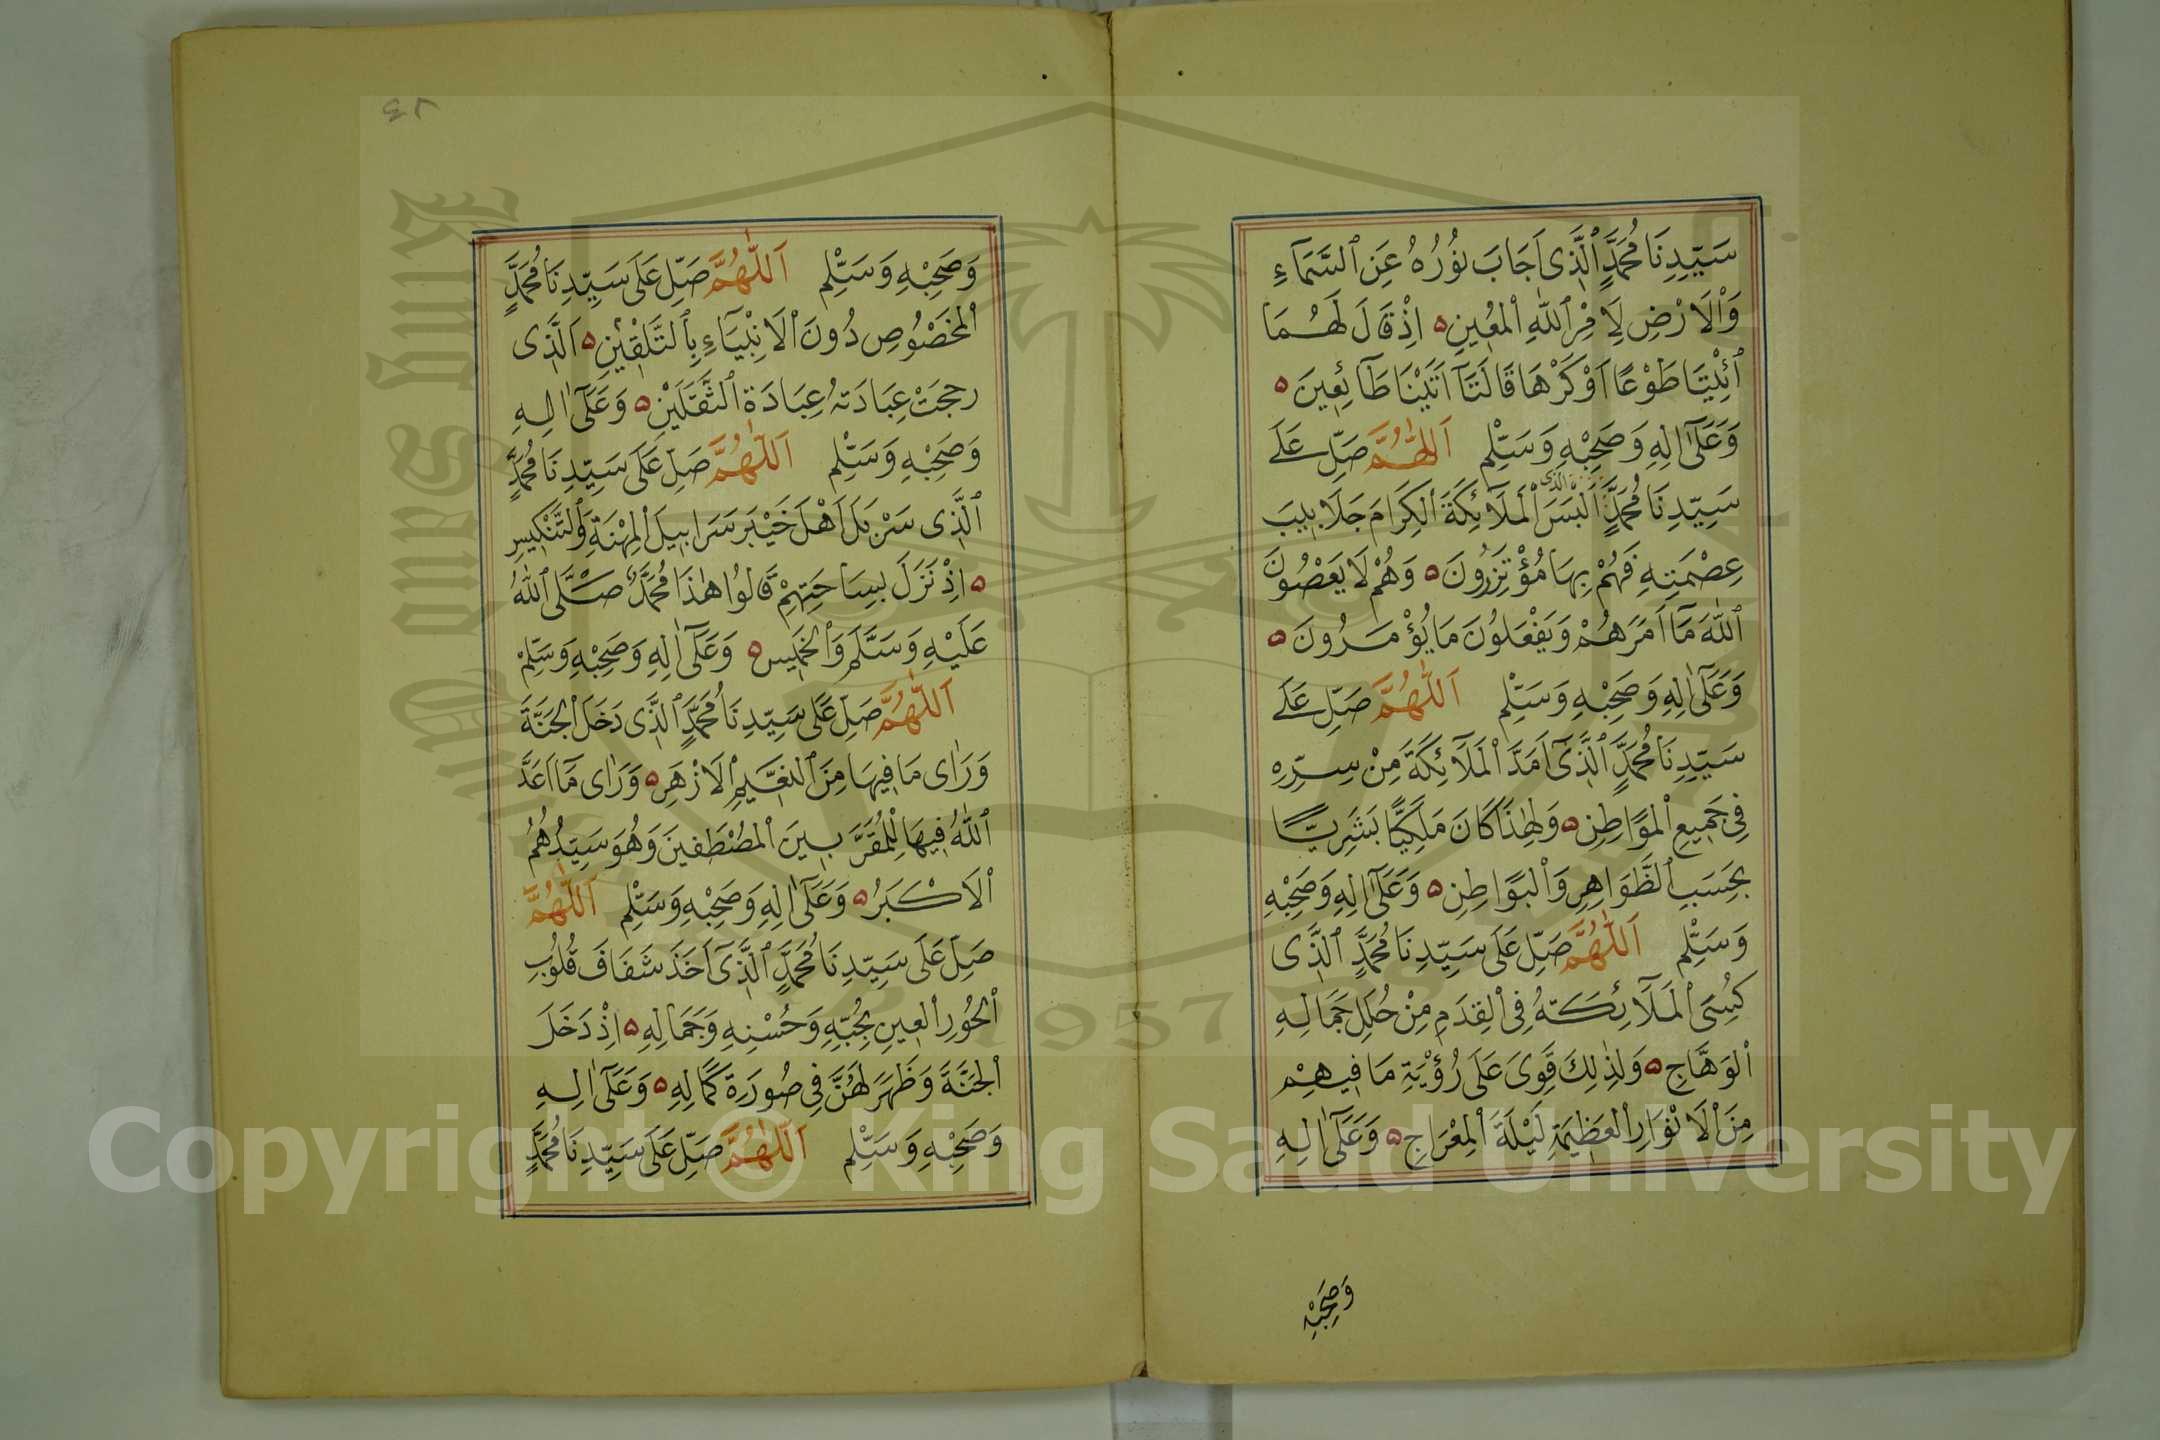 سَيِّدِنَا مُحَمَّدٍ ٱلَّذِى اَجَابَ نُورُهُ عَنِ ٱلسَّمَآءِ
وَٱلْاَرْضِ لِاَمْرِ ٱللّٰهِ ٱلْمُعِينِ ۵ اِذْ قَالَ لَهُمَا
ٱئْتِيَا طَوْعًا اَوْ كَرْهَا قَالَتَآ اَتَيْنَا طَآئِعِينَ ۵
وَعَلَىٰٓ اٰلِهِ وَصَحْبِهِ وَسَلِّمْ اَللّٰهُمَّ صَلِّ عَلَى
سَيِّدِنَا مُحَمَّدٍ ٱلَّذِى اَلْبَسَ ٱلْمَلَآئِكَةَ ٱلْكِرَامَ جَلَابِيبَ
عِصْمَتِهِ فَهُمْ بِهَا مُؤْتَزِرُونَ ۵ وَهُمْ لَا يَعْصُونَ
ٱللّٰهَ مَآ اَمَرَهُمْ وَيَفْعَلُونَ مَا يُؤْمَرُونَ ۵
وَعَلَىٰٓ اٰلِهِ وَصَحْبِهِ وَسَلِّمْ اَللّٰهُمَّ صَلِّ عَلَى
سَيِّدِنَا مُحَمَّدٍ ٱلَّذِىٓ اَمَدَّ ٱلْمَلَآئِكَةَ مِنْ سِرِّهِ
فِى جَمِيعِ ٱلْمَوَاطِنِ ۵ وَلِهٰذَا كَانَ مَلَكِيًّا بَشَرِيًّا
بِحَسَبِ ٱلظَّوَاهِرِ وَٱلْبَوَاطِنِ ۵ وَعَلَىٰٓ اٰلِهِ وَصَحْبِهِ
وَسَلِّمْ اَللّٰهُمَّ صَلِّ عَلَى سَيِّدِنَا مُحَمَّدٍ ٱلَّذِى
كُسِىَ ٱلْمَلَآئِكَتهُ فِى ٱلْقِدَمِ مِنْ حُلَلِ جَمَالِهِ
ٱلْوَهَّاجِ ۵ وَلِذٰلِكَ قَوِىَ عَلَى رُؤْيَةِ مَا فِيهِمْ
مِنَ ٱلْاَنْوَارِ ٱلْعَظِيمَةِ لَيْلَةَ ٱلْمِعْرَاجِ ۵ وَعَلَىٰٓ اٰلِهِ
وَصَحْبِهِ
٤٢
وَصَحْبِهِ وَسَلِّمْ اَللّٰهُمَّ صَلِّ عَلَى سَيِّدِنَا مُحَمَّدٍ
ٱلْمَخْصُوصِ دُونَ ٱلْاَنْبِيَآءِ بِٱلتَّلْقِينِ ۵ اَلَّذِى
رجحَتْ عِبَادَتهُ عِبَادَةَ ٱلثَّقَلَيْنِ ۵ وَعَلَىٰٓ اٰلِهِ
وَصَحْبِهِ وَسَلِّمْ اَللّٰهُمَّ صَلِّ عَلَى سَيِّدِنَا مُحَمَّدٍ
ٱلَّذِى سَرْبَلَ اَهْلَ خَيْبَرَ سَرَابِيلَ ٱلْمِهْنَةِ وَٱلتَّنْكِيسِ
۵ اِذْ نَزَلَ بِسَاحَتِهِمْ قَالُوا هٰذَا مُحَمَّدٌ صَلَّى ٱللّٰهُ
عَلَيْهِ وَسَلَّمَ وَٱلْخَمِيس ۵ وَعَلَىٰٓ اٰلِهِ وَصَحْبِهِ وَسَلِّمْ
اَللّٰهُمَّ صَلِّ عَلَى سَيِّدِنَا مُحَمَّدٍ ٱلَّذِى دَخَلَ ٱلْجَنَّةَ
وَرَاٰى مَا فِيهَا مِنَ ٱلنَّعِيمِ ٱلْاَزْهَرِ ۵ وَرَاٰى مَآ اَعَدَّ
ٱللّٰهُ فِيهَا لِلْمُقَرَّبِينَ ٱلْمُصْطَفَينَ وَهُوَ سَيِّدُهُمُ
ٱلْاَكْبَرُ ۵ وَعَلَىٰٓ اٰلِهِ وَصَحْبِهِ وَسَلِّمْ اَللّٰهُمَّ
صَلِّ عَلَى سَيِّدِنَا مُحَمَّدٍ ٱلَّذِىٓ اَخَذَ شَغَافَ قُلُوبِ
ٱلْحُورِ ٱلْعِينِ بِحُبِّهِ وَحُسْنِهِ وَجَمَالِهِ ۵ اِذْ دَخَلَ
ٱلْجَنَّةَ وَظَهَرَ لَهُنَّ فِى صُورَةِ كَمَالِهِ ۵ وَعَلَىٰٓ اٰلِهِ
وَصَحْبِهِ وَسَلِّمْ اَللّٰهُمَّ صَلِّ عَلَى سَيِّدِنَا مُحَمَّدٍ
King Saud University
1957
Copyright © King Saud University